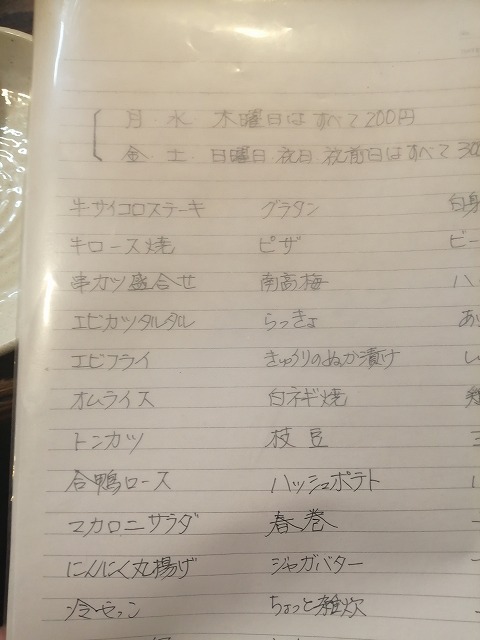 月・水・木曜日はすべて200円
金・土・日曜日・祝日・祝前日はすべて30
牛サイコロステーキ グラタン 白身
牛ロース焼 ピザ ビー
串カツ盛合せ 南高梅 ハ
エビカツタルタル らっきょ あ
エビフライ きゅうりのぬか漬け し
オムライス 白ネギ焼
トンカツ 枝豆
合鴨ロース ハッシュポテト
マカロニサラダ 春巻
にんにく丸揚げ ジャガバター
冷やっこ ちょっと雑炊